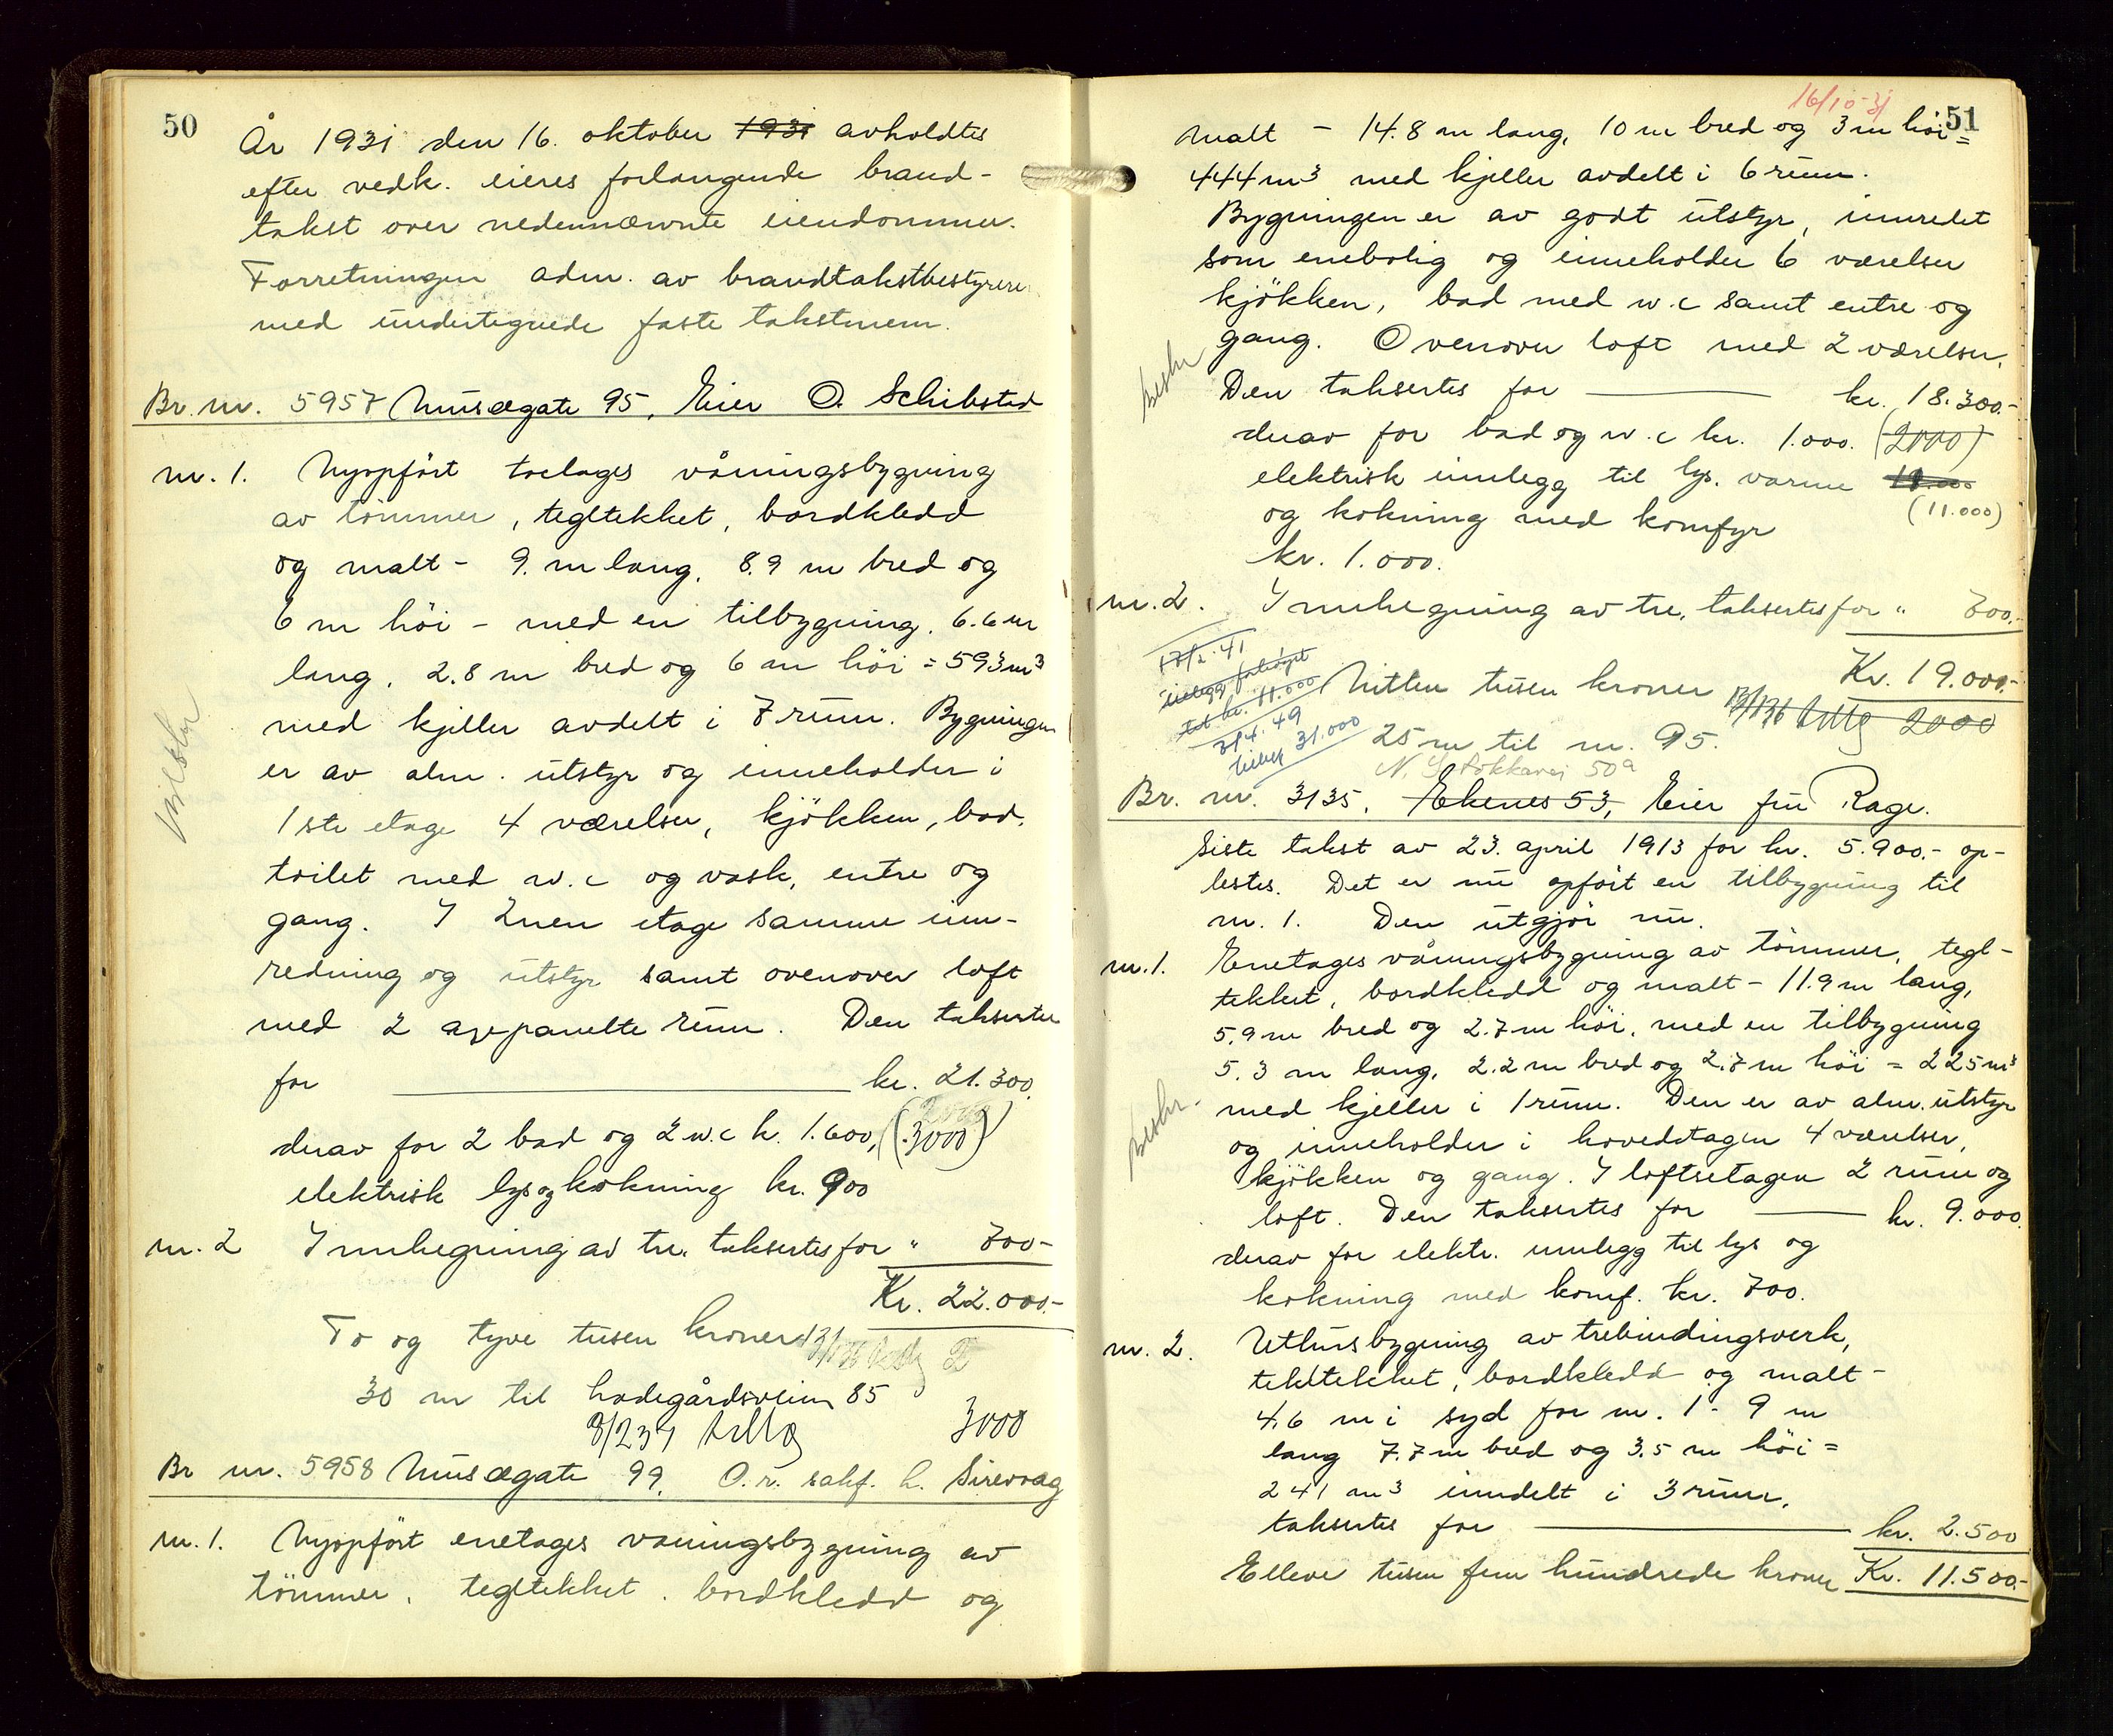 50
År 1931 den 16. oktober 1931 avholdtes
efter vedk. eieres forlangende brand-
takst over nedennævnte eiendommer.
Forretningen adm. av brandtakstbestyreren
med undertegnede faste takstmenn.
Br. nr. 5957 Musægate 95, Eier O. Schibsted
nr. 1. Nyopfört toetages våningsbygning
av tömmer, tegltekket, bordkledd
og malt - 9. m lang, 8.9 m bred og
6 m höi - med en tilbygning, 6.6 m
lang, 2.8 m bred og 6 m höi = 593 m³
med kjeller avdelt i 7 rum. Bygningen
er av alm. utstyr og inneholder i
1ste etage 4 værelser, kjökken, bad,
toilet med w.c og vask, entre og
gang. I 2nen etage samme inn-
redning og utstyr samt ovenover loft
med 2 avpanelte rum. Den taksertes
for kr. 21.300.
derav for 2 bad og 2 w.c kr. 1.600, (3000)
elektrisk lys og kokning kr. 900
nr. 2 Innhegning av tre, taksertes for " 700-
Kr. 22.000.-
To og tyve tusen kroner
30 m til Ladegårdsveien 85
3000
Br nr. 5958 Musægate 99. O.r. sakf. h. Sirevaag
nr. 1. Nyopfört enetages våningsbygning av
tömmer, tegltekket, bordkledd og
16/10-31
51
malt - 14.8 m lang, 10 m bred og 3 m höi =
444 m³ med kjeller avdelt i 6 rum.
Bygningen er av godt utstyr, innredet
som enebolig og inneholder 6 værelser
kjökken, bad med w.c samt entre og
gang. Ovenover loft med 2 værelser.
Beskr
Den taksertes for kr. 18.300.-
derav for bad og w.c kr. 1.000. (2000)
elektrisk innlegg til lys, varme
og kokning med komfyr (11.000)
kr. 1.000.
nr. 2. Innhegning av tre, taksertes for " 700.-
Kr. 19.000.-
17/2. 41
innlegg forhöiet
tot kr. 11.000
3/4. 49
tillegg 31.000
Nitten tusen kroner
2000
25 m til nr. 95.
N. Stokkavei 50a
Br. nr. 3135, Ekenes 53, Eier fru Rage.
Siste takst av 23. april 1913 for kr. 5.900.- op-
lestes. Det er nu opfört en tilbygning til
nr. 1. Den utgjör nu.
nr. 1. Enetages våningsbygning av tömmer, tegl-
tekket, bordkledd og malt - 11.9 m lang,
5.9 m bred og 2.7 m höi, med en tilbygning
5.3 m lang, 2.2 m bred og 2.7 m höi = 225 m³
Beskr.
med kjeller i 1 rum. Den er av alm. utstyr
og inneholder i hovedetagen 4 værelser,
kjökken og gang. I loftsetagen 2 rum og
loft. Den taksertes for kr. 9.000.
derav for elektr. innlegg til lys og
kokning med komf. kr. 700.
nr. 2. Uthusbygning av trebindingsverk,
tekltekket, bordkledd og malt -
4,6 m i syd for nr. 1 - 9 m
lang 7.7 m bred og 3.5 m höi =
241 m³ inndelt i 3 rum.
taksertes for kr. 2.500
Elleve tusen fem hundrede kroner Kr. 11.500.-